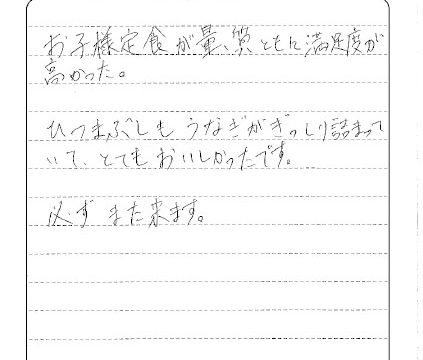 お子様定食が量、質ともに満足度が
高かった。
ひつまぶしもうなぎがぎっしり詰まって
いて、とてもおいしかったです。
必ずまた来ます。